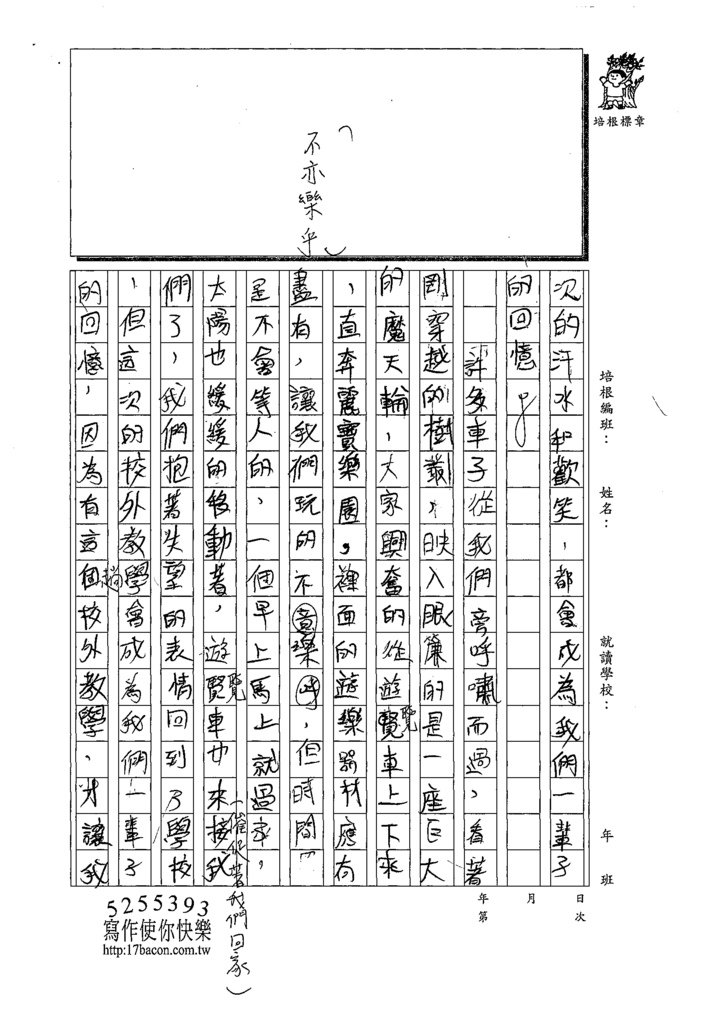 培根標章
培根編班：
姓名：
就讀學校：
年 班
（不亦樂乎）
次的汗水和歡笑，都會成為我們一輩子
的回憶。
許多車子從我們旁呼嘯而過，看著
剛穿越的樹叢，映入眼簾的是一座巨大
的魔天輪，大家興奮的從遊覽車上下來
，直奔麗寶樂園。裡面的遊樂器材應有
盡有，讓我們玩的不意樂呼，但時間
是不會等人的，一個早上馬上就過家，
太陽也緩緩的移動著，遊覽車也來接我
（催促著我們回家）
們了，我們抱著失望的表情回到了學校
，但這次的校外教學會成為我們一輩子
的回憶，因為有這個趟校外教學，才讓我
年 月 日
第 次
5255393
寫作使你快樂
http:17bacon.com.tw